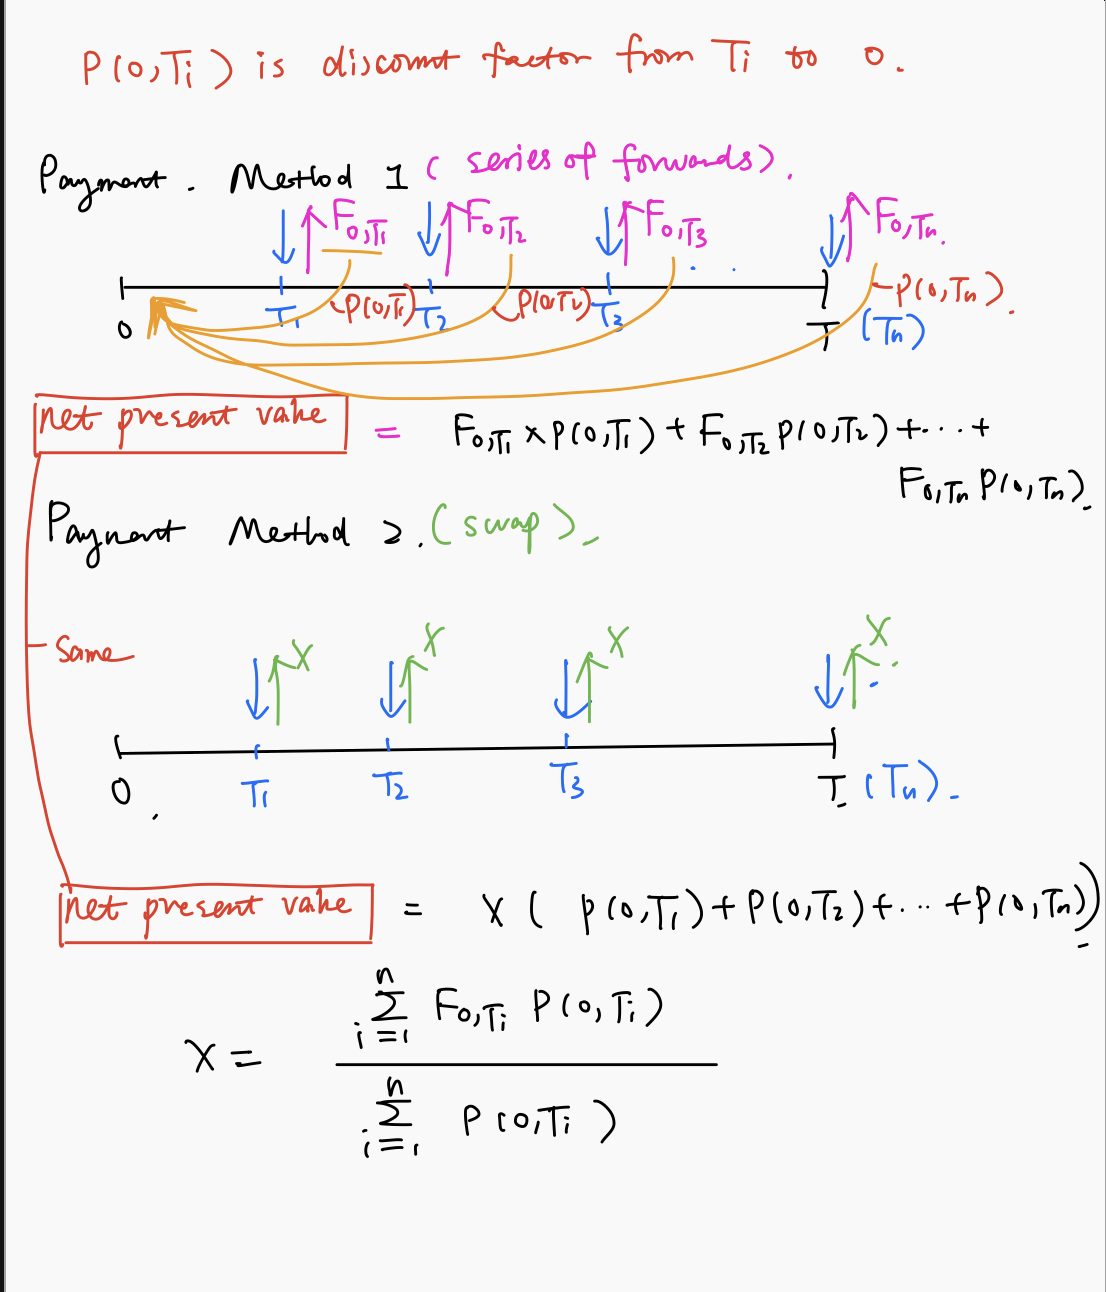 P(0,Ti) is discount factor from Ti to 0.
Payment. Method 1 (series of forwards).
F0,T1 F0,T2 F0,T3 F0,Tn.
P(0,T1) P(0,T2) P(0,Tn).
0 T1 T2 T3 T (Tn)
net present value = F0,T1 x P(0,T1) + F0,T2 P(0,T2) + ... +
F0,Tn P(0,Tn).
Payment Method 2. (swap).
Same
X X X X
0 T1 T2 T3 T (Tn).
net present value = X ( P(0,T1) + P(0,T2) + ... + P(0,Tn))
n
Σ F0,Ti P(0,Ti)
i=1
X =
n
Σ P(0,Ti)
i=1